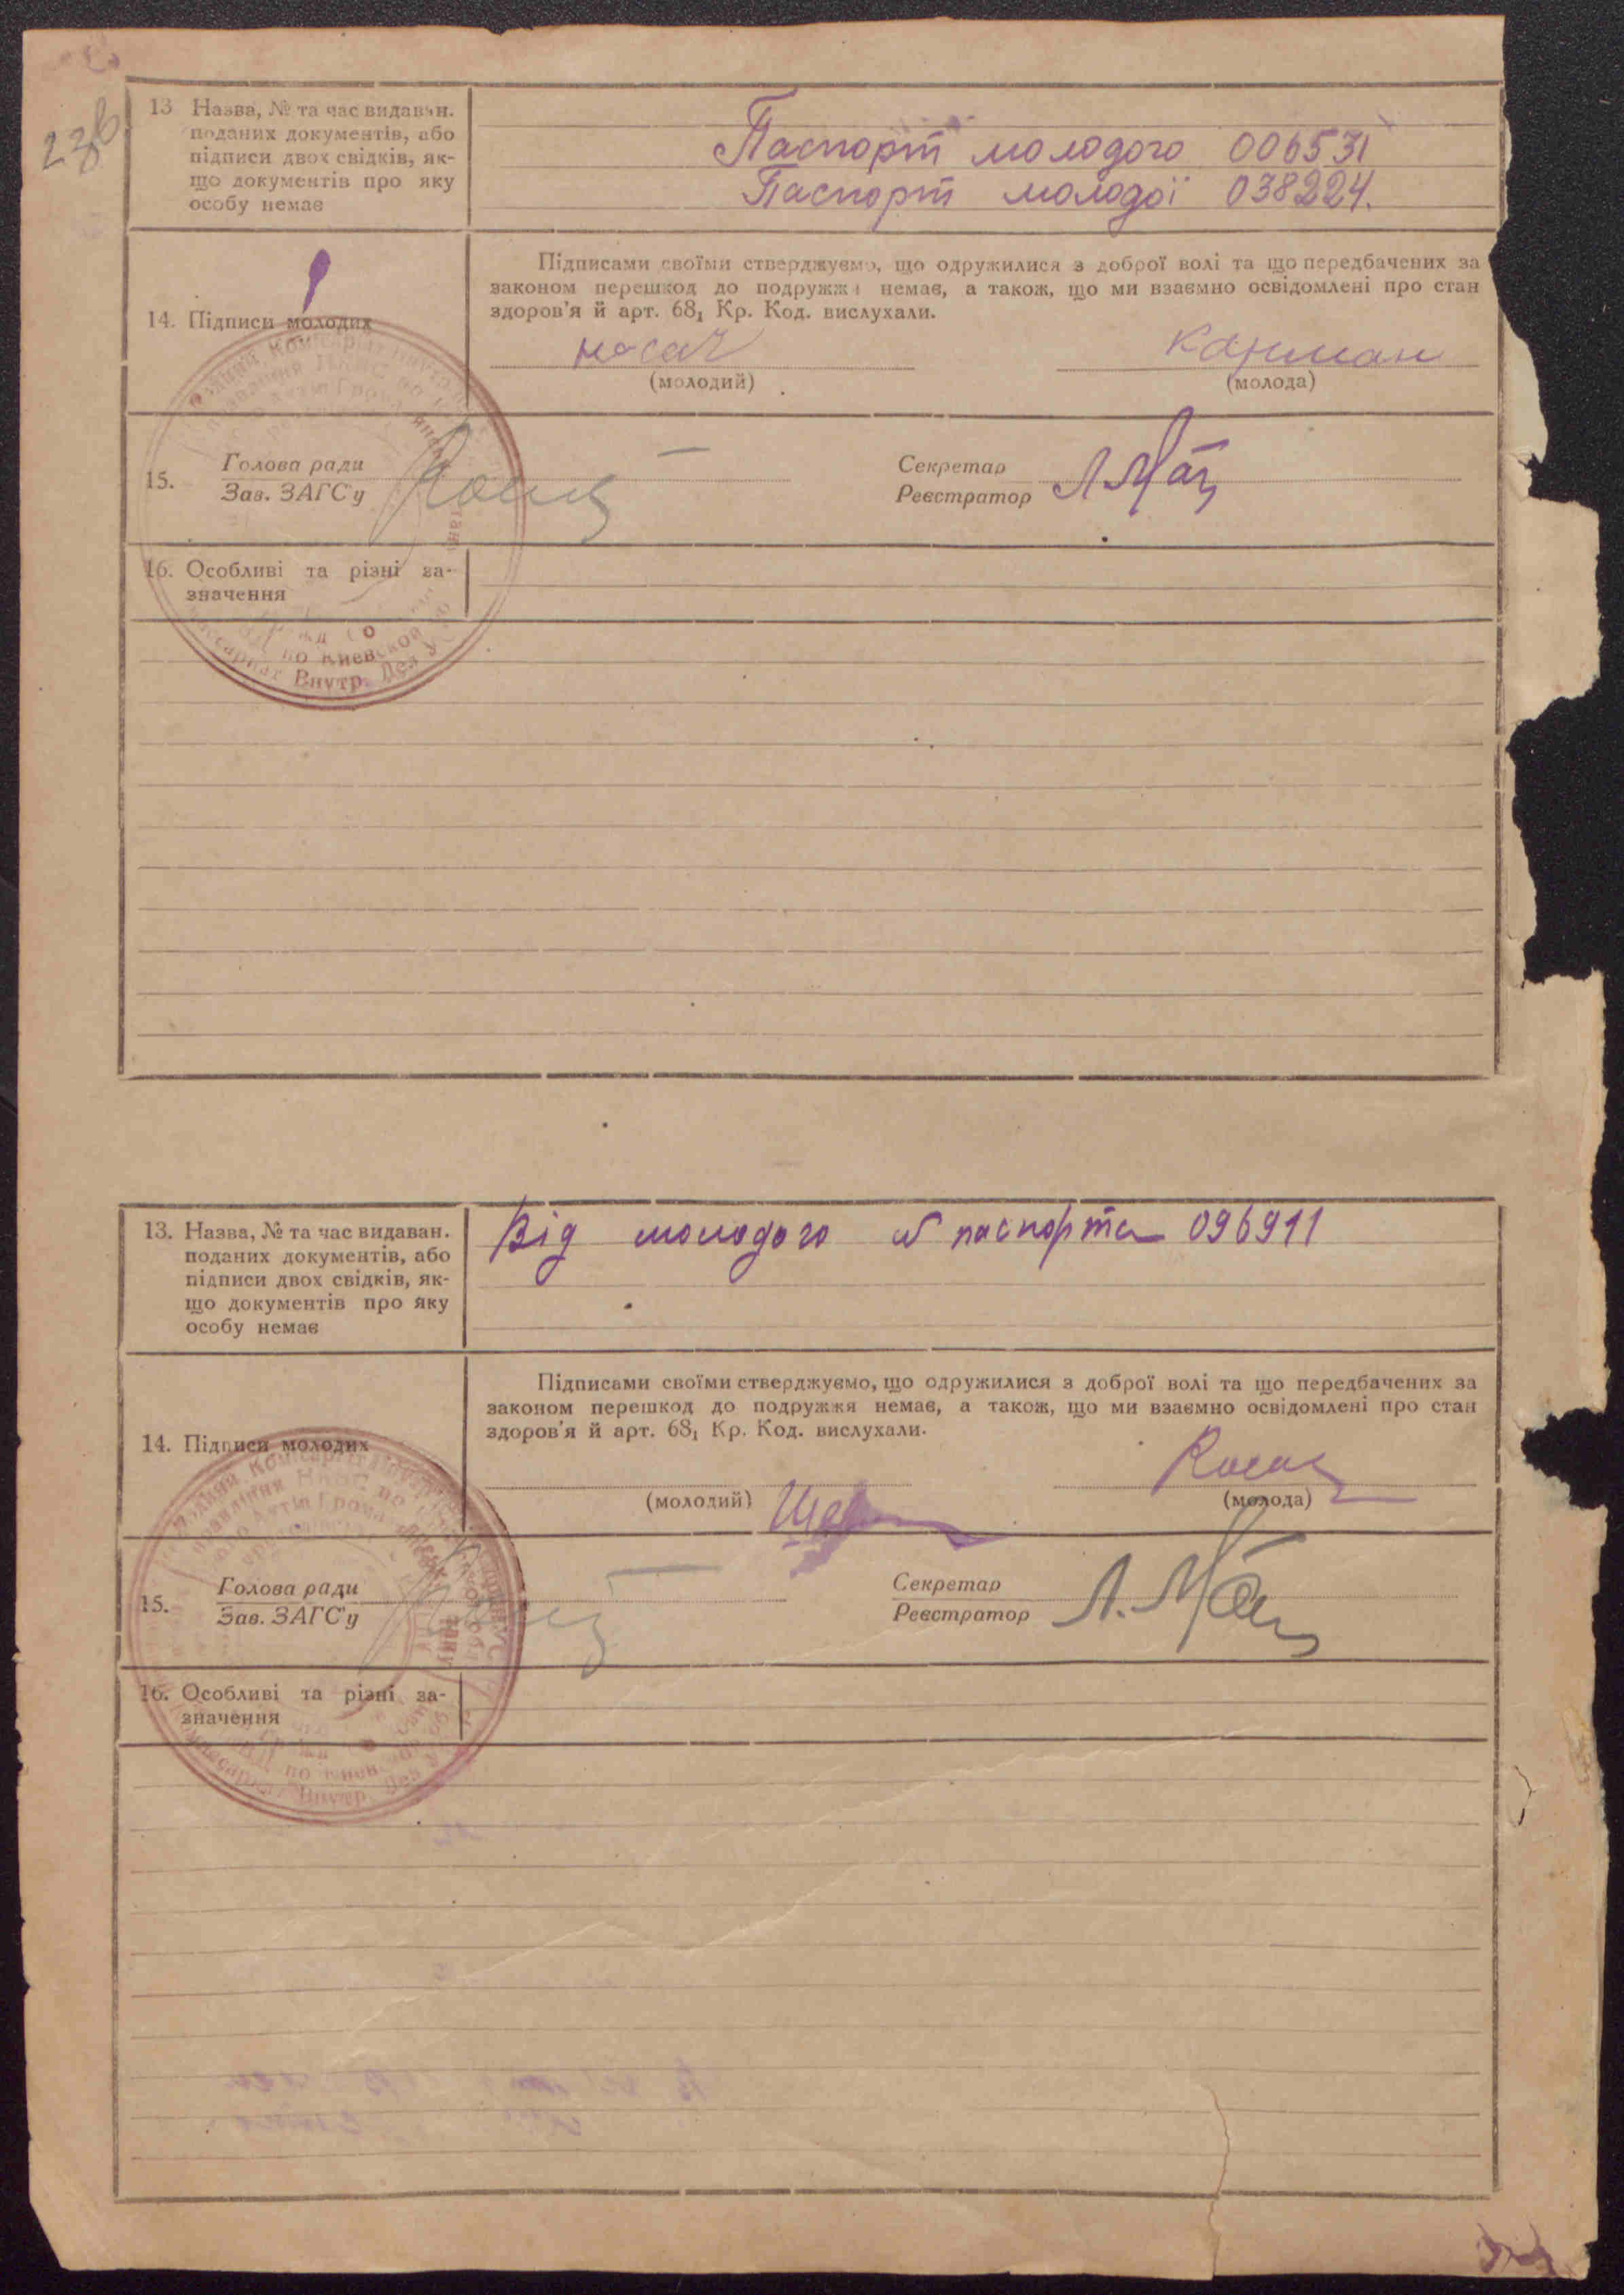 236
13 Назва, № та час видаван.
поданих документів, або
підписи двох свідків, як-
що документів про яку
особу немає
Паспорт молодого 006531
Паспорт молодої 038224.
14. Підписи молодих
Підписами своїми стверджуємо, що одружилися з доброї волі та що передбачених за
законом перешкод до подружжя немає, а також, що ми взаємно освідомлені про стан
здоров'я й арт. 68₁ Кр. Код. вислухали.
носач
(молодий)
(молода)
15.
Голова ради
Зав. ЗАГС'у
Секретар
Реєстратор
16. Особливі та різні за-
значення
по Киевской
Внутр. Дел
13. Назва, № та час видаван.
поданих документів, або
підписи двох свідків, як-
що документів про яку
особу немає
Від молодого № паспорта 096911
14. Підписи молодих
Підписами своїми стверджуємо, що одружилися з доброї волі та що передбачених за
законом перешкод до подружжя немає, а також, що ми взаємно освідомлені про стан
здоров'я й арт. 68₁ Кр. Код. вислухали.
(молодий)
(молода)
15.
Голова ради
Зав. ЗАГС'у
Секретар
Реєстратор
16. Особливі та різні за-
значення